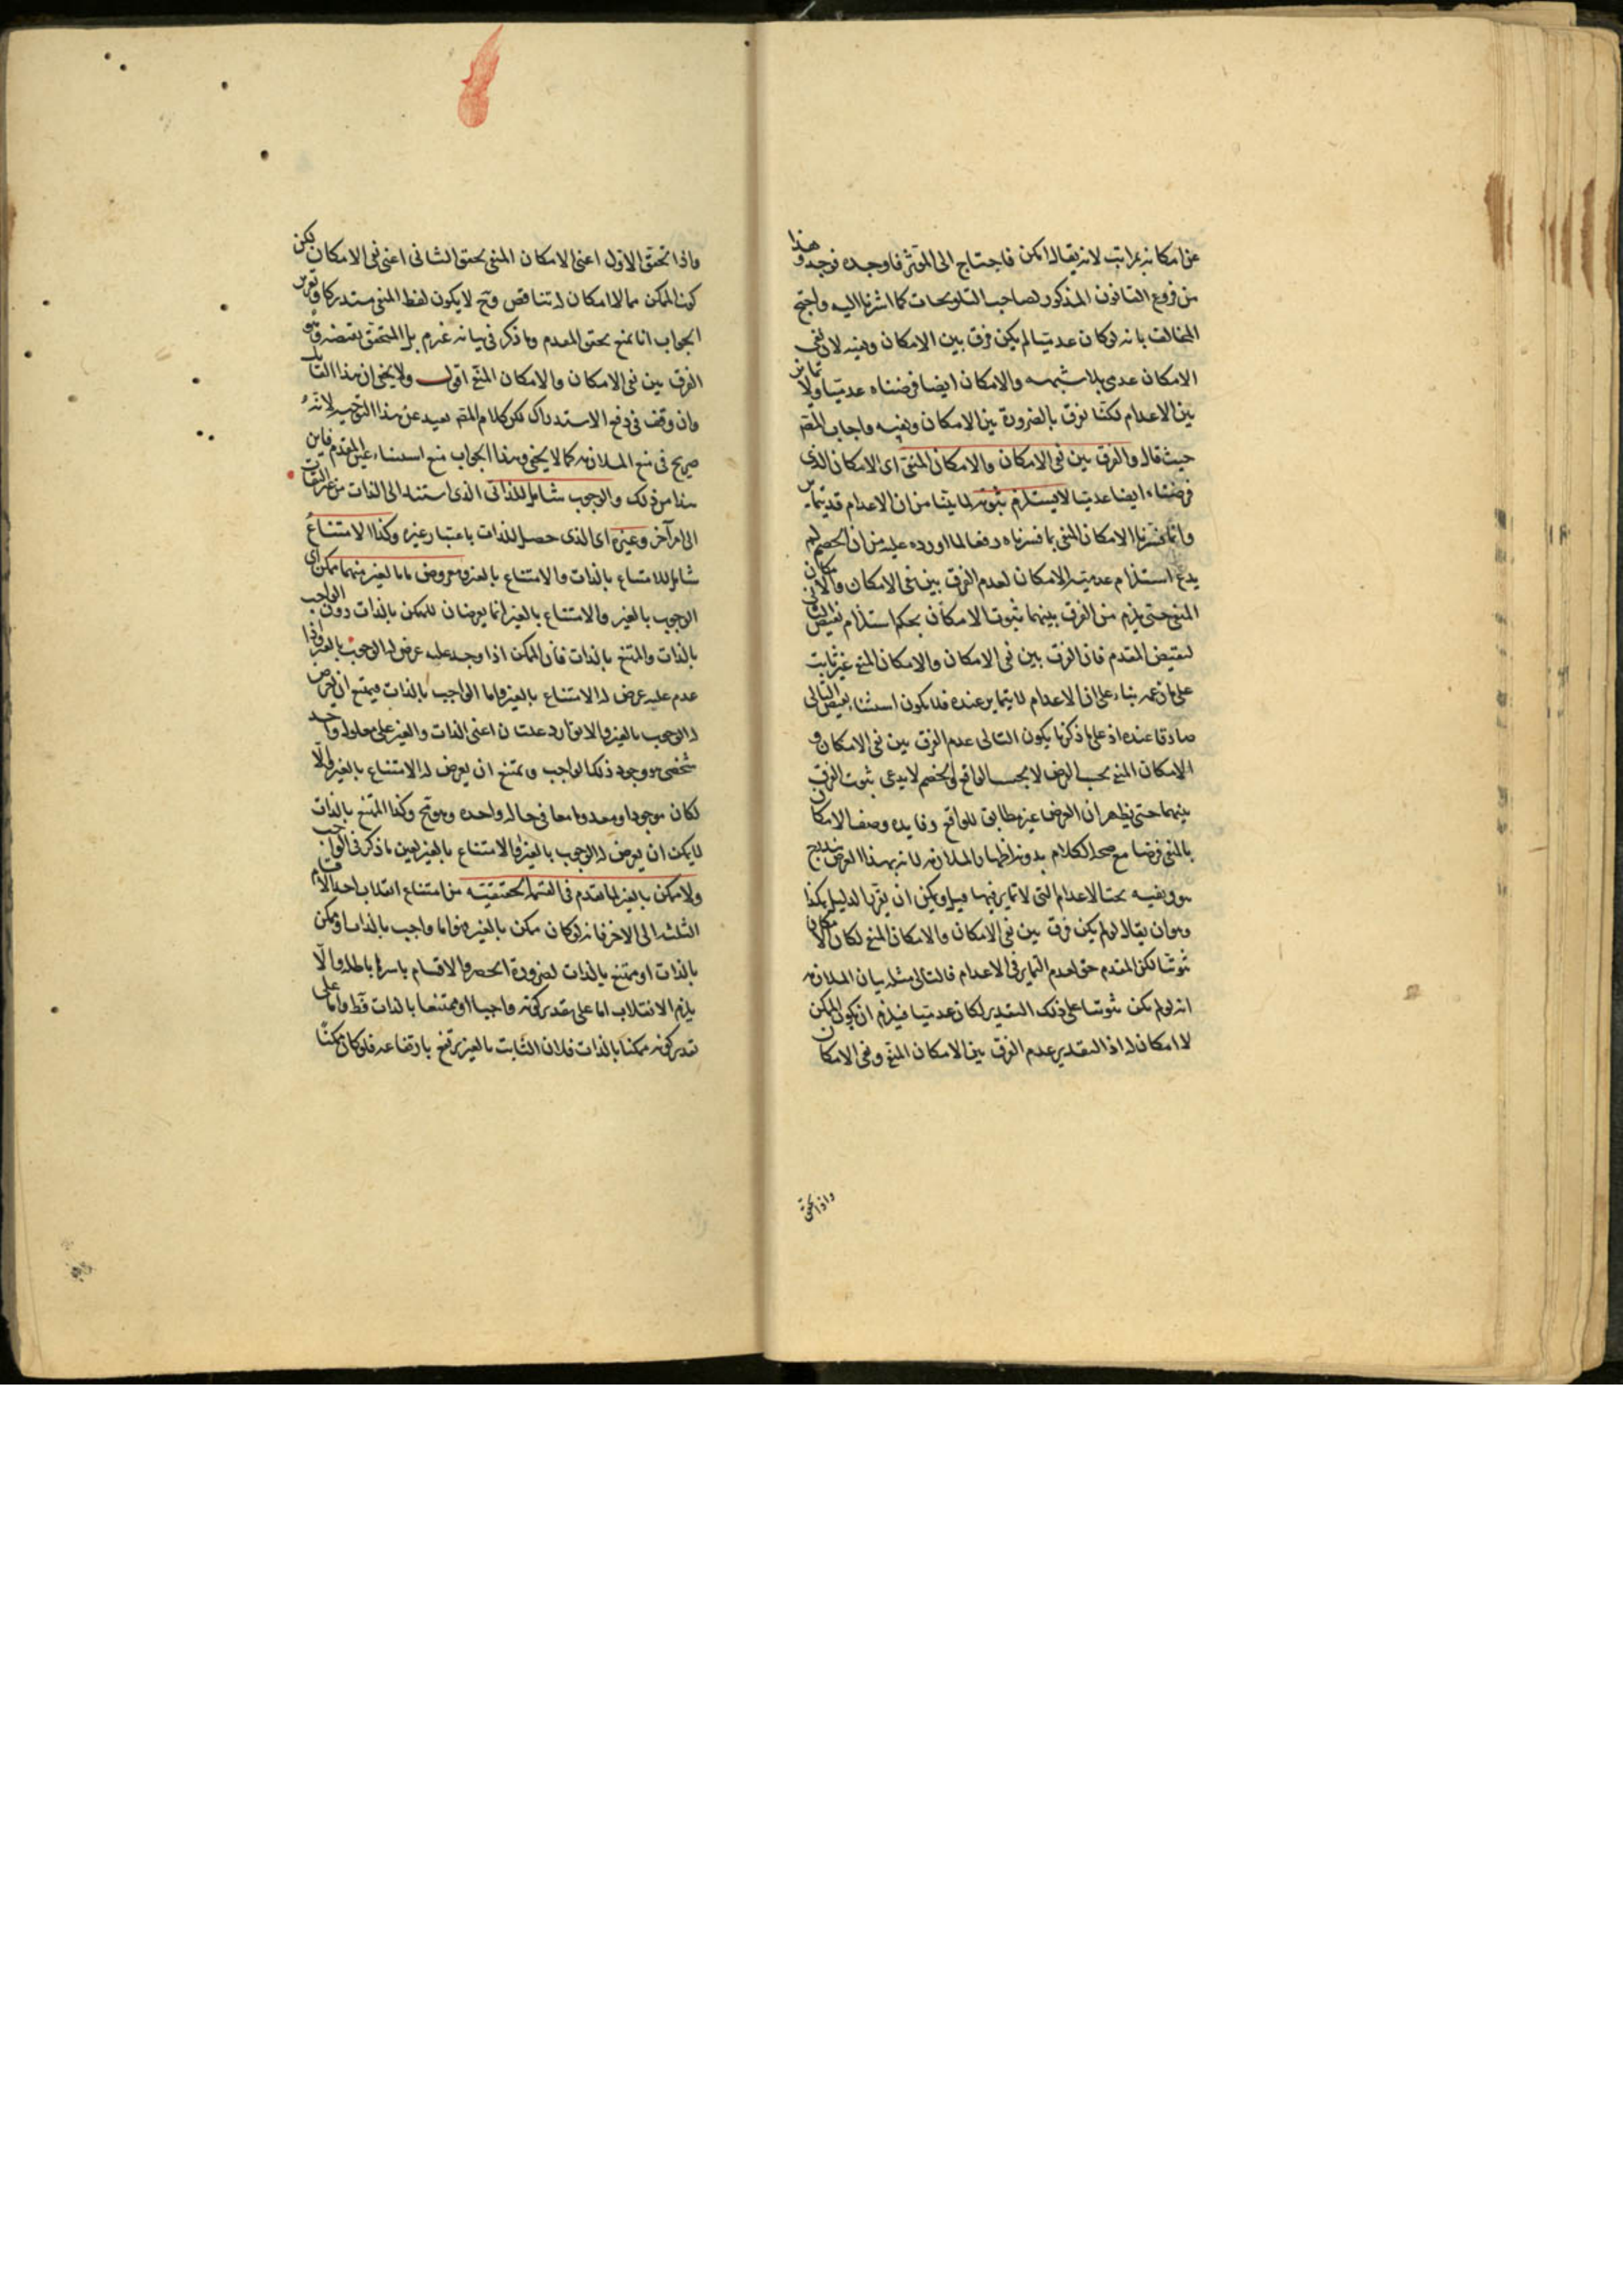 عن امكانه بمراتب لانه يقال امكن فاحتاج الى المؤثر فاوجده فوجد وهذا
من فروع القانون المذكور لصاحب التلويحات كما اشرنا اليه واحتج
المخالف بانه لو كان عدميا لم يكن فرق بين الامكان ونفيه لان نفى
الامكان عدمى بلا شبهه والامكان ايضا فرضناه عدميا ولا تمايز
بين الاعدام لكنا نفرق بالضرورة بين الامكان ونفيه واجاب المص
حيث قال والفرق بين نفى الامكان والامكان المنفى اى الامكان الذى
فرضناه ايضا عدميا لا يستلزم ثبوته لما بينا من ان الاعدام قد تتمايز
وانما فسرنا الامكان المنفى بما فسرناه دفعا لما اورده عليه من ان الخصم لم
يدع استلزام عدمية الامكان لعدم الفرق بين نفى الامكان والامكان
المنفى حتى يلزم من الفرق بينهما ثبوت الامكان بحكم استلزام نقيض التالى
لنقيض المقدم فان الفرق بين نفى الامكان والامكان المنفى غير ثابت
على زعمه بناء على ان الاعدام لا يتمايز عنده فلا يكون استثناء نقيض التالى
صادقا عنده اذ على ما ذكرنا يكون التالى عدم الفرق بين نفى الامكان و
الامكان المنفى بحسب الفرض لا بحسب الواقع والخصم لا يدعى ثبوت الفرق
بينهما حتى يظهر ان الفرض غير مطابق للواقع وفايده وصف الامكان
بالمنفى فرضا مع صحه الكلام بدونه اظهار الملازمه لانه بهذا الفرض يندرج
هو ونفيه تحت الاعدام التى لا تمايز فيها قيل ويمكن ان يقرر الدليل هكذا
وهو ان يقال لو لم يكن فرق بين نفى الامكان والامكان المنفى لكان الامكان
ثبوتيا لكن المقدم حق لعدم التمايز فى الاعدام فالتالى مثله بيان الملازمه
انه لو لم يكن ثبوتيا على ذلك التقدير لكان عدميا فيلزم ان يكون الممكن
لا امكان له اذ التقدير عدم الفرق بين الامكان المنفى ونفى الامكان
واذا تحقق
واذا تحقق الاول اعنى الامكان المنفى تحقق الثانى اعنى نفى الامكان لكن
كون الممكن مما لا امكان له تناقض وح لا يكون لفظ المنفى مستدركا وتقرير
الجواب انا نمنع تحقق المقدم وما ذكر فى بيانه غير تم بل المتحقق نقيضه وهو
الفرق بين نفى الامكان والامكان المنفى اقول ولا يخفى ان هذا القائل
وان وقف فى دفع الاستدراك لكن كلام المص بعيد عن هذا التوجيه لانه
صريح فى منع الملازمه كما لا يخفى وهذا الجواب منع استثناء عين المقدم فاين
هذا من ذلك والوجوب شامل للذاتى الذى استند الى الذات من غير التفات
الى امر آخر وغيره اى الذى حصل للذات باعتبار غيره وكذا الامتناع
شامل للامتناع بالذات والامتناع بالغير ومعروض ما بالغير منهما ممكن اى
الوجوب بالغير والامتناع بالغير انما يعرضان للممكن بالذات دون الواجب
بالذات والممتنع بالذات فان الممكن اذا وجد علته عرض له الوجوب بالغير واذا
عدم علته عرض له الامتناع بالغير واما الواجب بالذات فيمتنع ان يعرض
له الوجوب بالغير والا لتوارد علتان اعنى الذات والغير على معلول واحد
شخصى هو وجود ذلك الواجب ويمتنع ان يعرض له الامتناع بالغير والا
لكان موجودا ومعدوما معا فى حاله واحده وهو مح وكذا الممتنع بالذات
لا يمكن ان يعرض له الوجوب بالغير والامتناع بالغير بعين ما ذكر فى الواجب
ولا ممكن بالغير لما تقدم فى القسمة الحقيقيه من امتناع انقلاب احد الاقسام
الثلثه الى الاخر فانه لو كان ممكن بالغير فهو اما واجب بالذات او ممكن
بالذات او ممتنع بالذات لضرورة الحصر والاقسام باسرها باطله والا
يلزم الانقلاب اما على تقدير كونه واجبا او ممتنعا بالذات فظ واما على
تقدير كونه ممكنا بالذات فلان الثابت بالغير يرتفع بارتفاعه فلو كان ممكنا